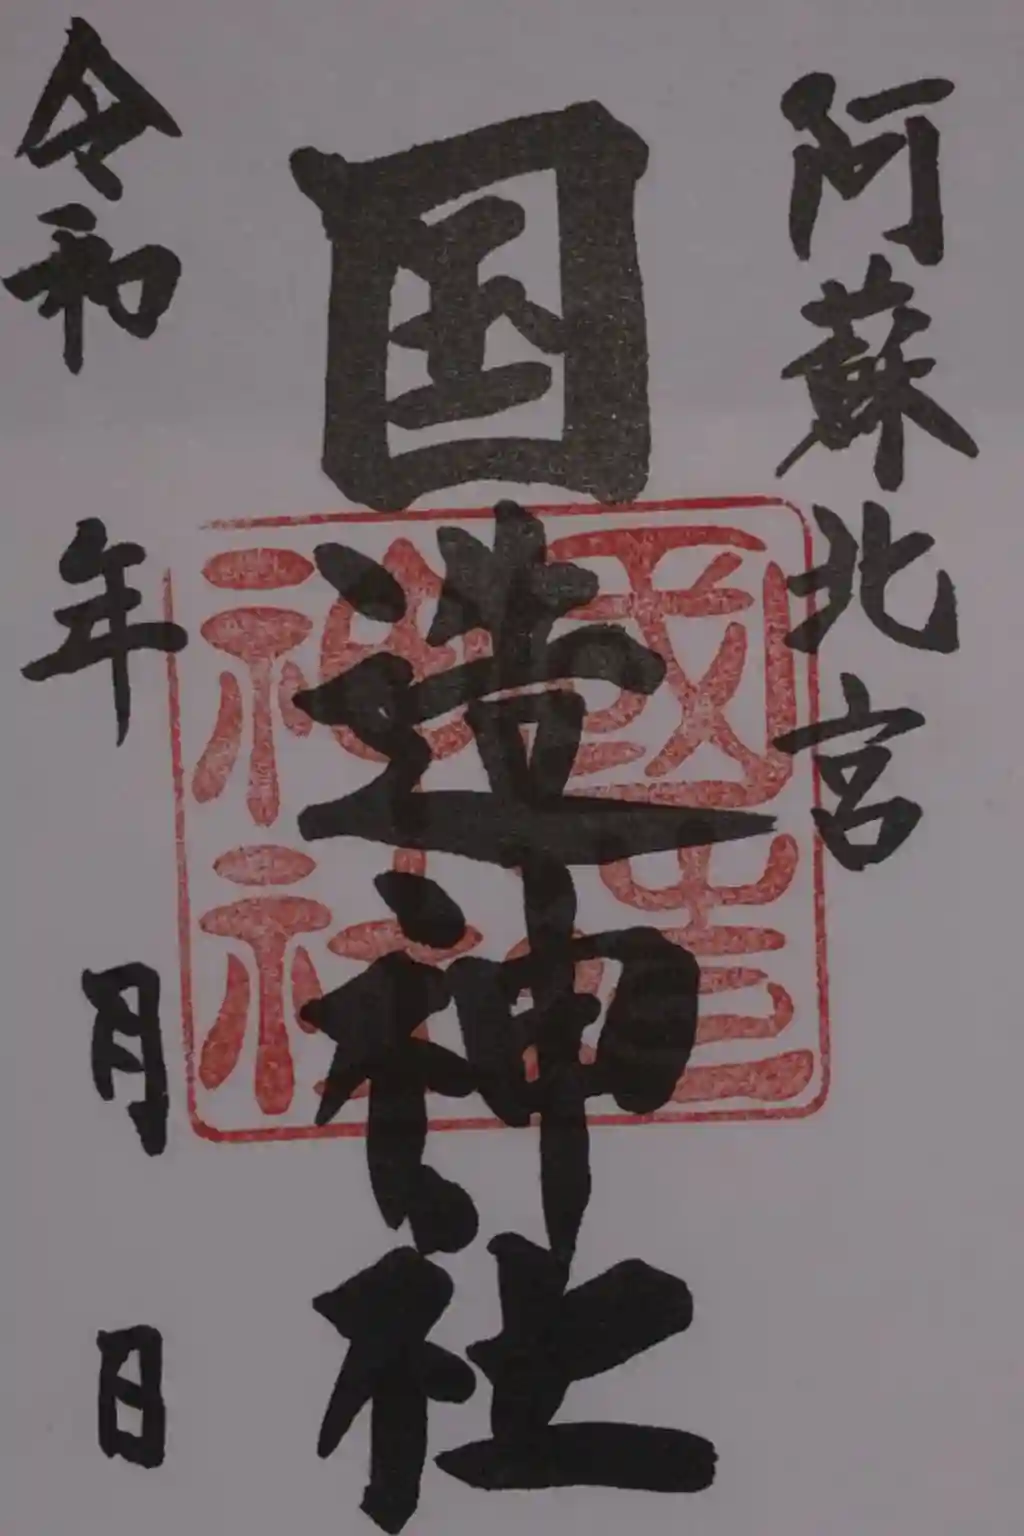 阿蘇北宮
国造神社
國造神社
令和 年 月 日